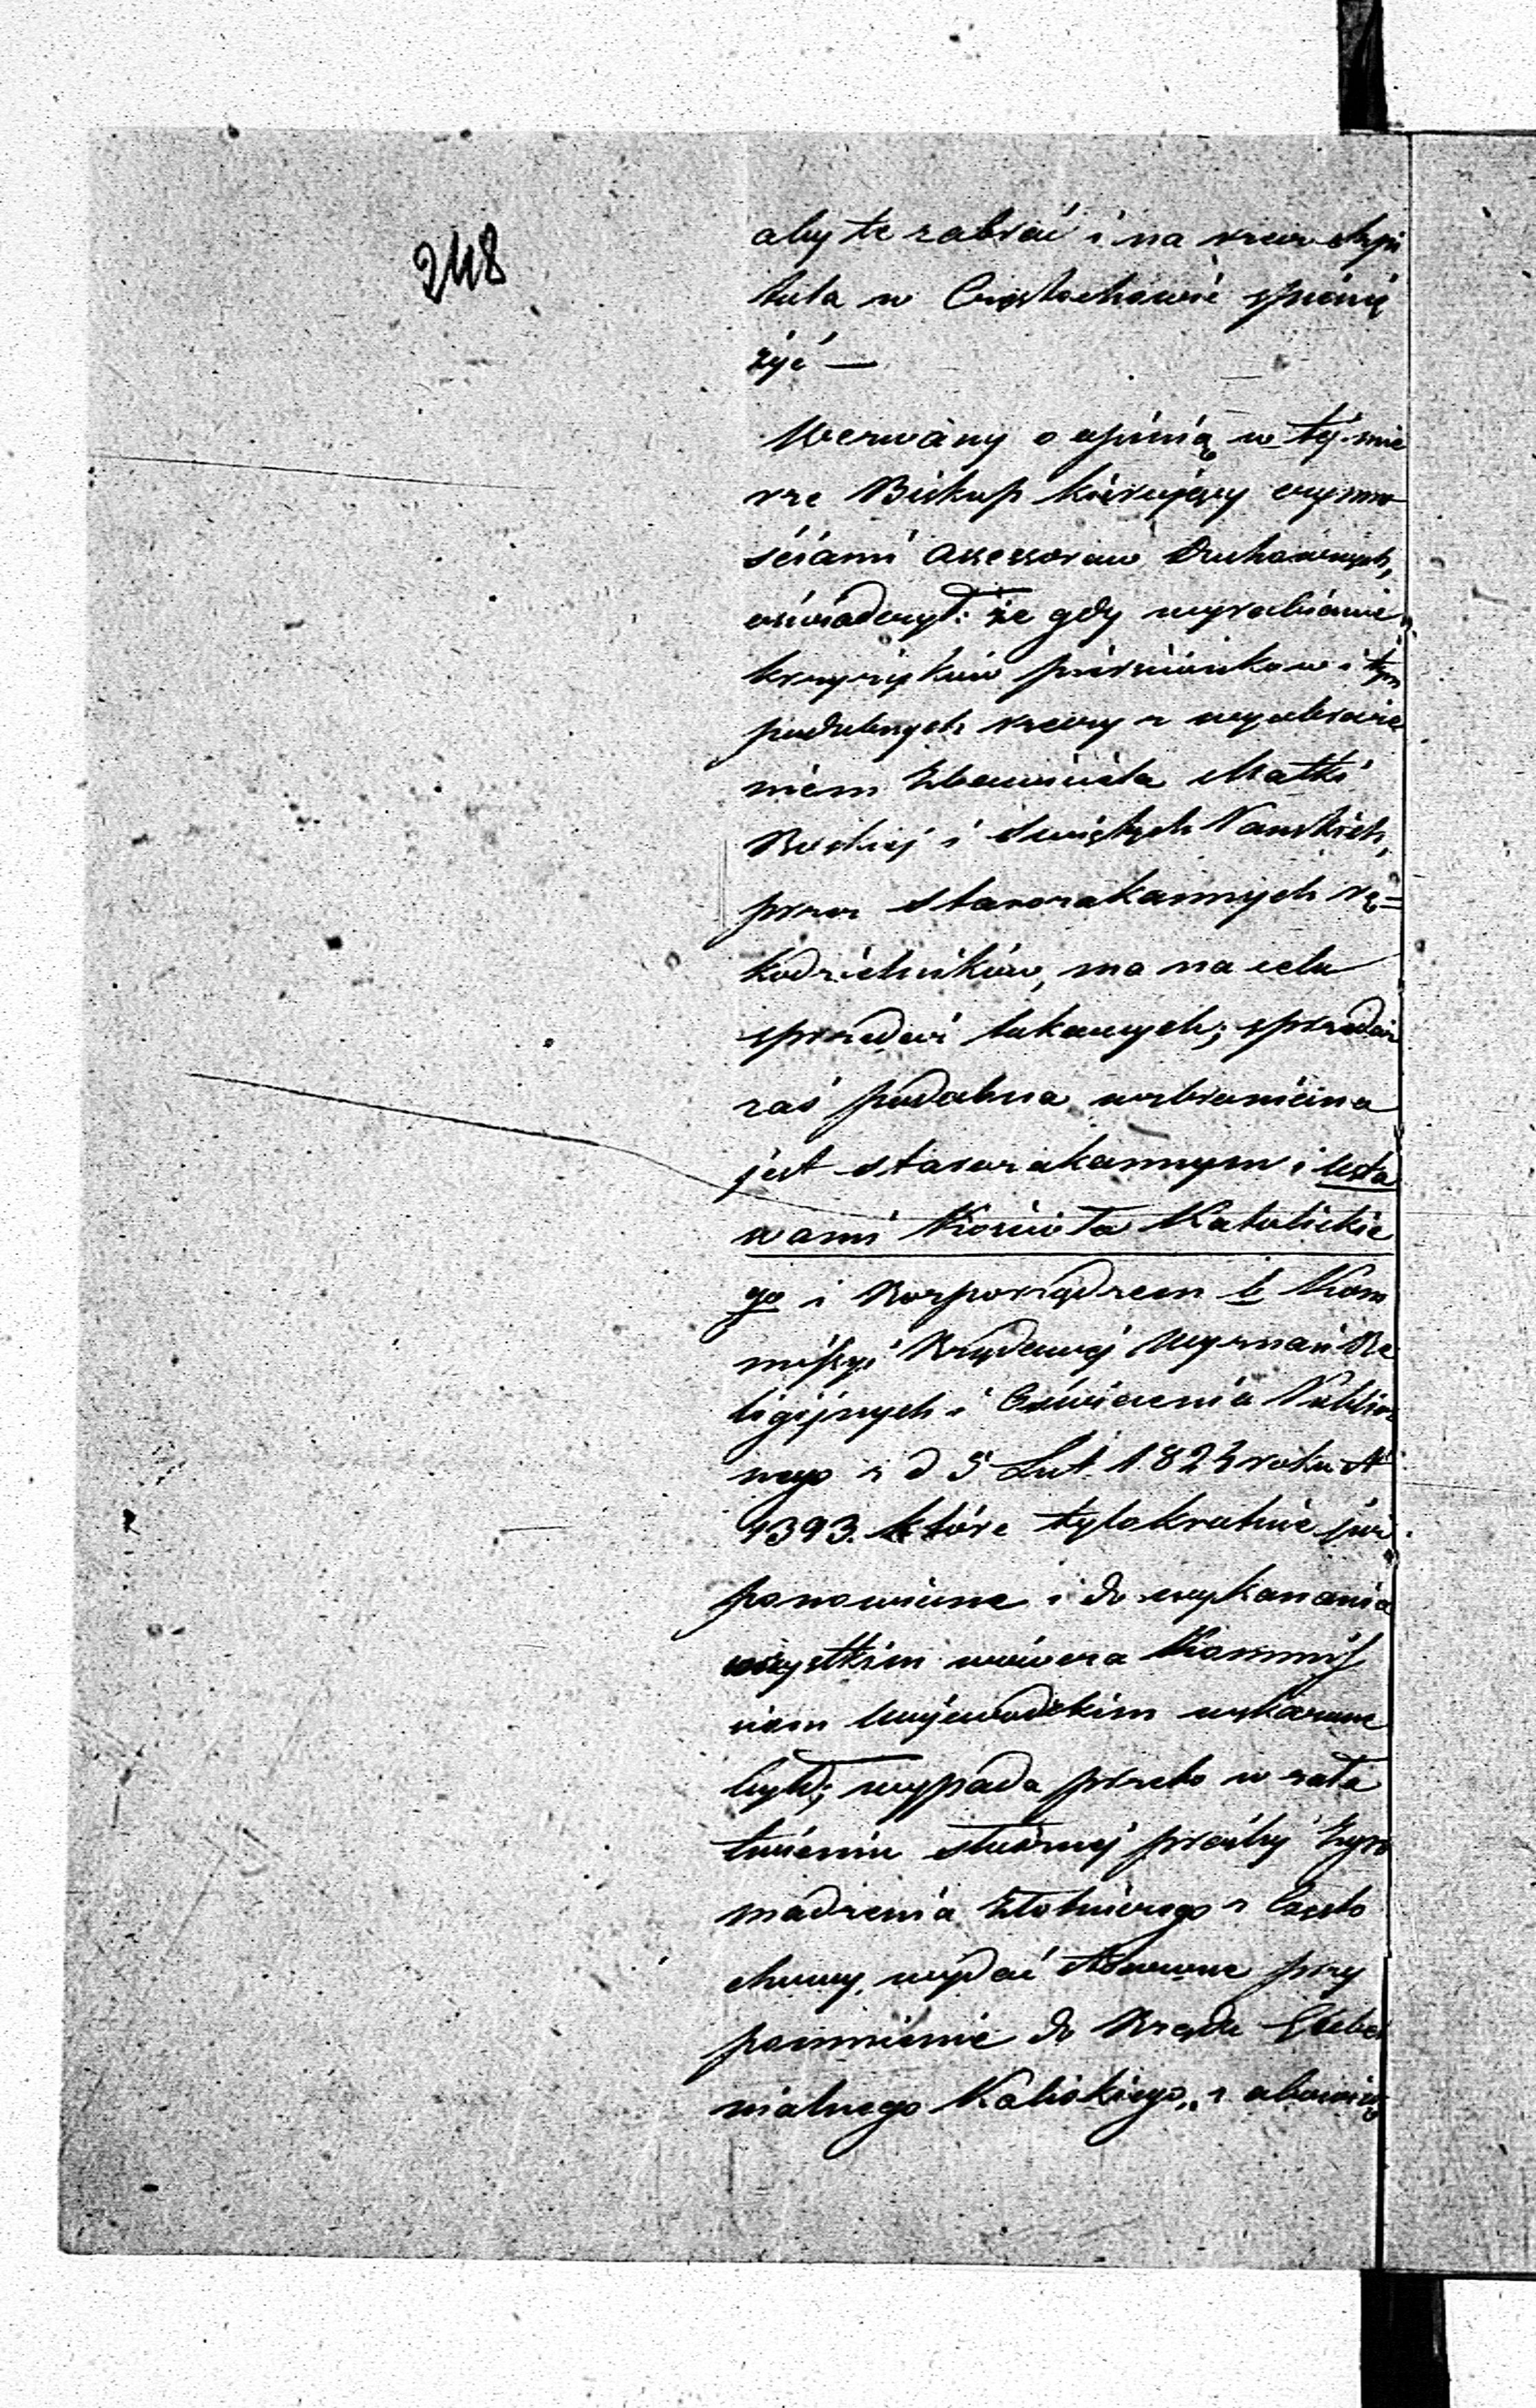 248
aby te zabrać i na rzecz szpi
tala w Częstochowie spienię
żyć —
Wezwany o opinią w téj mie
rze Biskup kierujący czynno
ściami Assessorow Duchownych,
oświadczył: że gdy wyrabianie
krzyżyków pierścionkow i tym
podobnych rzeczy z wyobraże
niem Zbawiciela Matki
Boskiej i Swiętych Pańskich,
przez starozakonnych rę=
kodzielników, ma na celu
sprzedaż takowych; sprzedaż
zaś podobna wzbronioną
jest starozakonnym i usta
wami Kościoła Katolickie
go i Rozporządzen b Kom
missyi Rządowéj Wyznań Re
ligijnych i Oświecenia Public
nego z d 5 Lut. 1824 roku N
1393. które tylokrotnie już
ponowione i do wykonania
wszystkim wówcza Kommiss
iom Wojewodzkim wskazane
były; wypada przeto w zała
twieniu słusznej prośby Zgro
madzenia Złotniczego z Często
chowy, wydać stosowne przy
pomnienie do Rządu Guber
nialnego Kaliskiego, z obowią